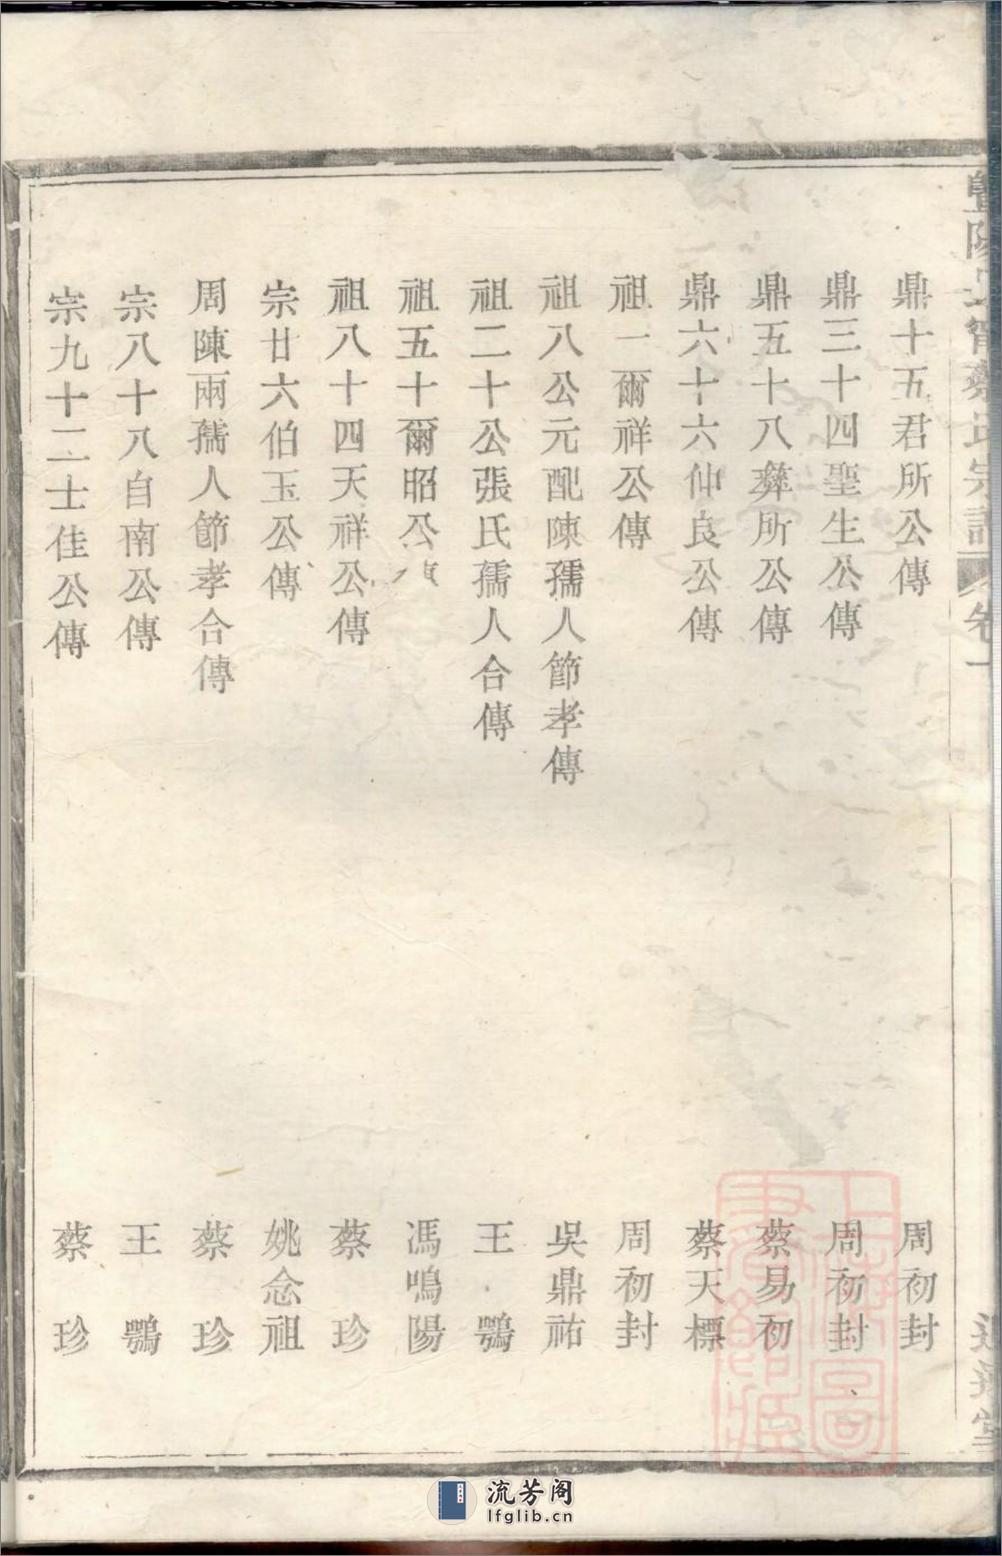 鼎十五君所公傳 周初封
鼎三十四聖生公傳 周初封
鼎五十八彝所公傳 蔡易初
鼎六十六仲良公傳 蔡天標
祖一爾祥公傳 周初封
祖八公元配陳孺人節孝傳 吳鼎祐
祖二十公張氏孺人合傳 王鶚
祖五十爾昭公 馮鳴陽
祖八十四天祥公傳 蔡珍
宗廿六伯玉公傳 姚念祖
周陳兩孺人節孝合傳 蔡珍
宗八十八自南公傳 王鶚
宗九十二士佳公傳 蔡珍
流芳阁
lfglib.cn